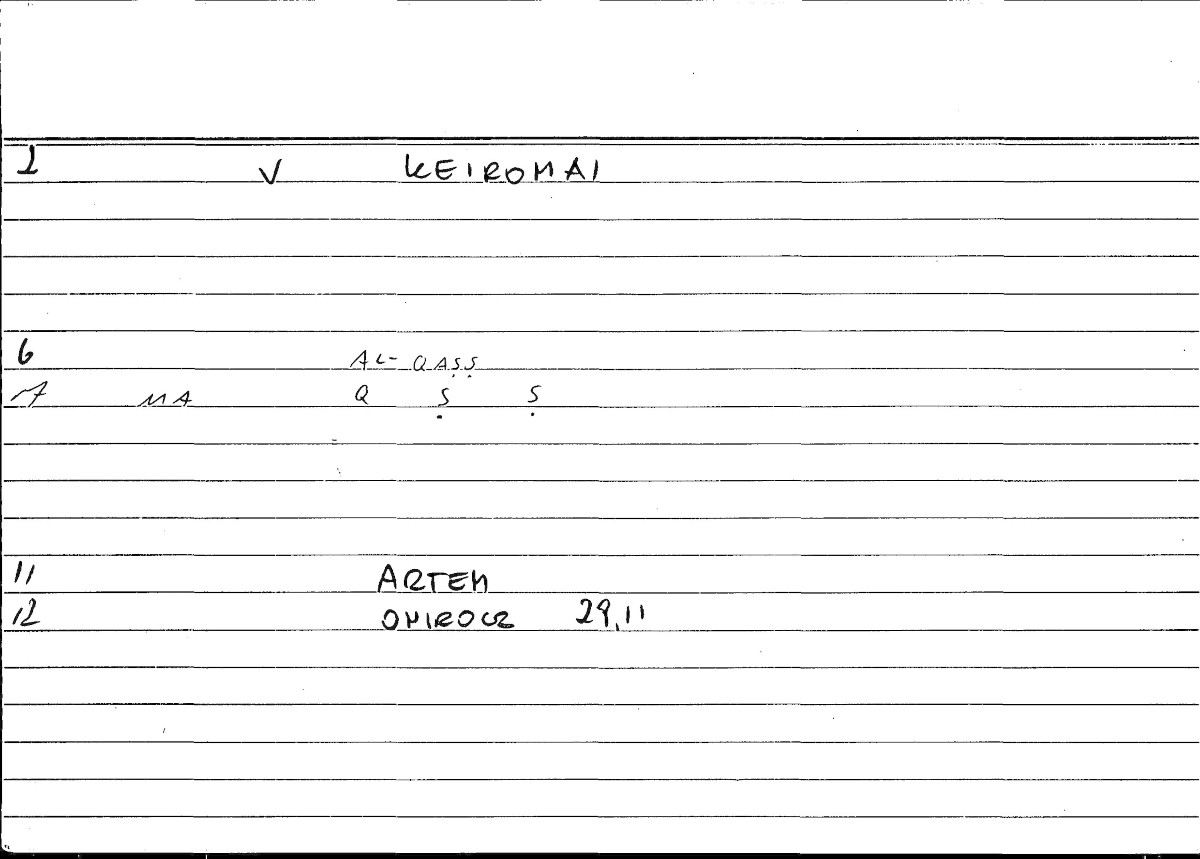 1 V KEIROMAI
6 AL-QAṢṢ
7 MA Q Ṣ Ṣ
11 ARTEM
12 ONIROCR 29,11